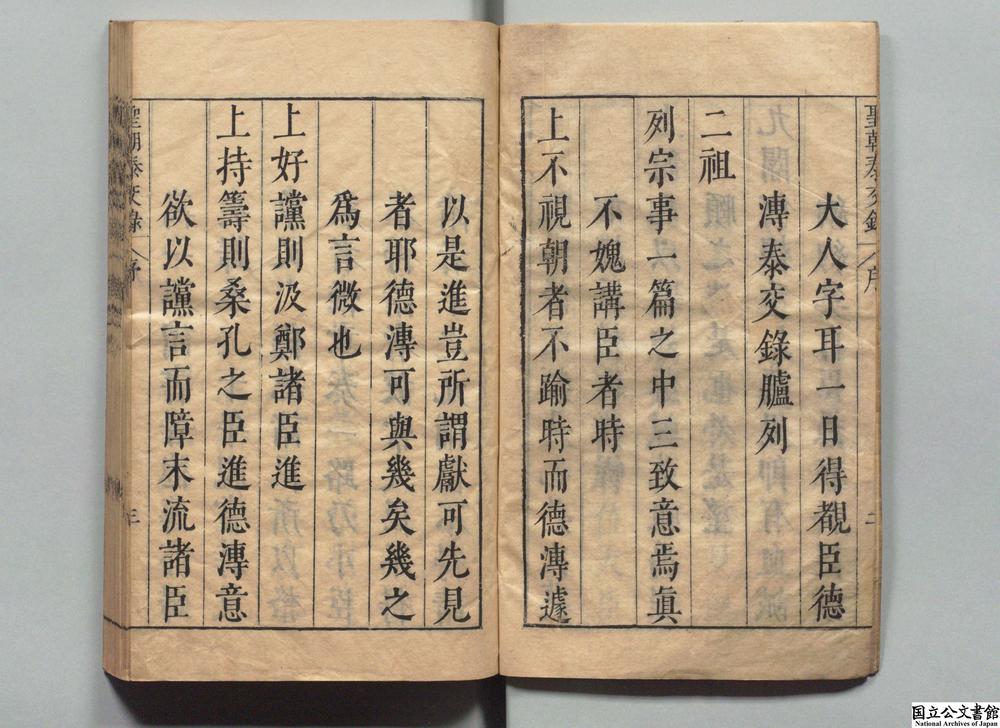 聖朝泰交錄
序
二
大人字耳一日得覩臣德
溥泰交錄臚列
二祖
列宗事一篇之中三致意焉眞
不媿講臣者時
上不視朝者不踰時而德溥遽
以是進豈所謂獻可先見
者耶德溥可與幾矣幾之
爲言微也
上好讜則汲鄭諸臣進
上持籌則桑孔之臣進德溥意
欲以讜言而障末流諸臣
聖朝泰交錄
序
三
国立公文書館
National Archives of Japan